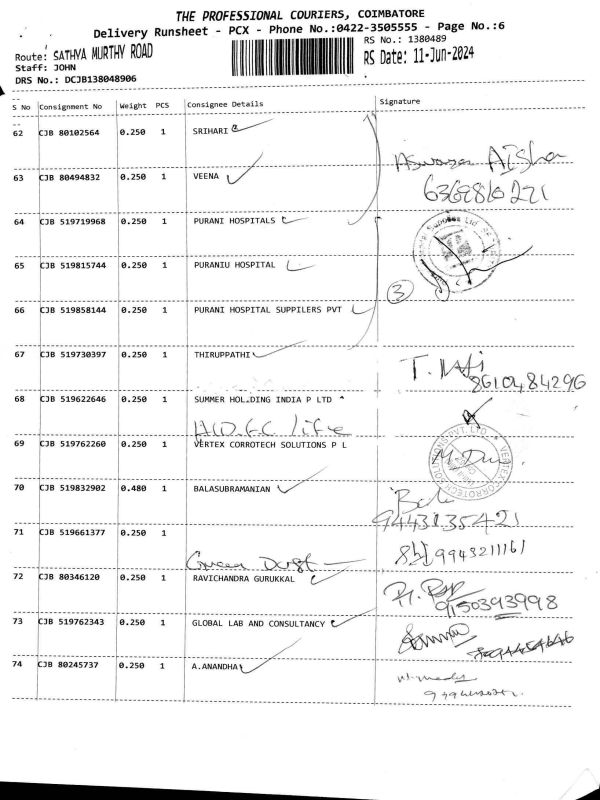 THE PROFESSIONAL COURIERS, COIMBATORE
Delivery Runsheet - PCX - Phone No.:0422-3505555 - Page No.:6
Route: SATHYA MURTHY ROAD
RS No.: 1380489
Staff: JOHN
RS Date: 11-Jun-2024
DRS No.: DCJB138048906
S No Consignment No Weight PCS Consignee Details Signature
62 CJB 80102564 0.250 1 SRIHARI
Aisha
63 CJB 80494832 0.250 1 VEENA
64 CJB 519719968 0.250 1 PURANI HOSPITALS
65 CJB 519815744 0.250 1 PURANIU HOSPITAL
3
66 CJB 519858144 0.250 1 PURANI HOSPITAL SUPPILERS PVT
67 CJB 519730397 0.250 1 THIRUPPATHI
8610484296
68 CJB 519622646 0.250 1 SUMMER HOLDING INDIA P LTD
life
69 CJB 519762260 0.250 1 VERTEX CORROTECH SOLUTIONS P L
70 CJB 519832902 0.480 1 BALASUBRAMANIAN
9443135421
71 CJB 519661377 0.250 1
9943211161
72 CJB 80346120 0.250 1 RAVICHANDRA GURUKKAL
9150393998
73 CJB 519762343 0.250 1 GLOBAL LAB AND CONSULTANCY
74 CJB 80245737 0.250 1 A.ANANDHA